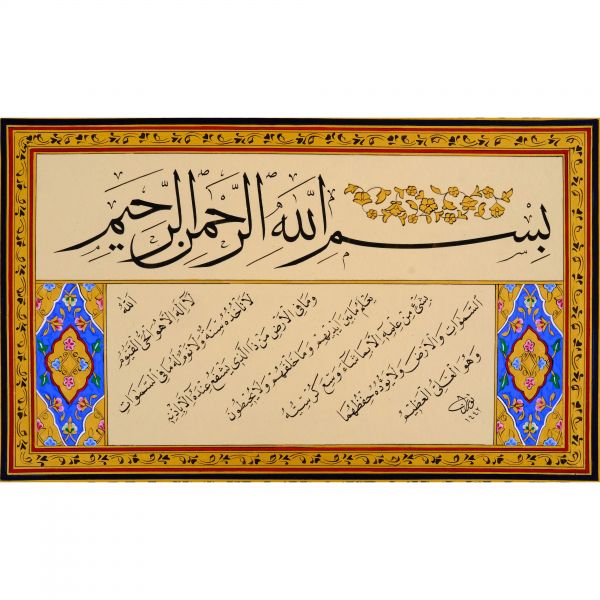 بِسْمِ اللهِ الرَّحْمٰنِ الرَّحِيمِ
اَللهُ
لَا إِلٰهَ إِلَّا هُوَ الْحَيُّ الْقَيُّومُ
لَا تَأْخُذُهُ سِنَةٌ وَلَا نَوْمٌ لَهُ مَا فِي السَّمٰوَاتِ
وَمَا فِي الْأَرْضِ مَنْ ذَا الَّذِي يَشْفَعُ عِنْدَهُ إِلَّا بِإِذْنِهِ
يَعْلَمُ مَا بَيْنَ أَيْدِيهِمْ وَمَا خَلْفَهُمْ وَلَا يُحِيطُونَ
بِشَيْءٍ مِنْ عِلْمِهِ إِلَّا بِمَا شَاءَ وَسِعَ كُرْسِيُّهُ
السَّمٰوَاتِ وَالْأَرْضَ وَلَا يَؤُدُهُ حِفْظُهُمَا
وَهُوَ الْعَلِيُّ الْعَظِيمُ